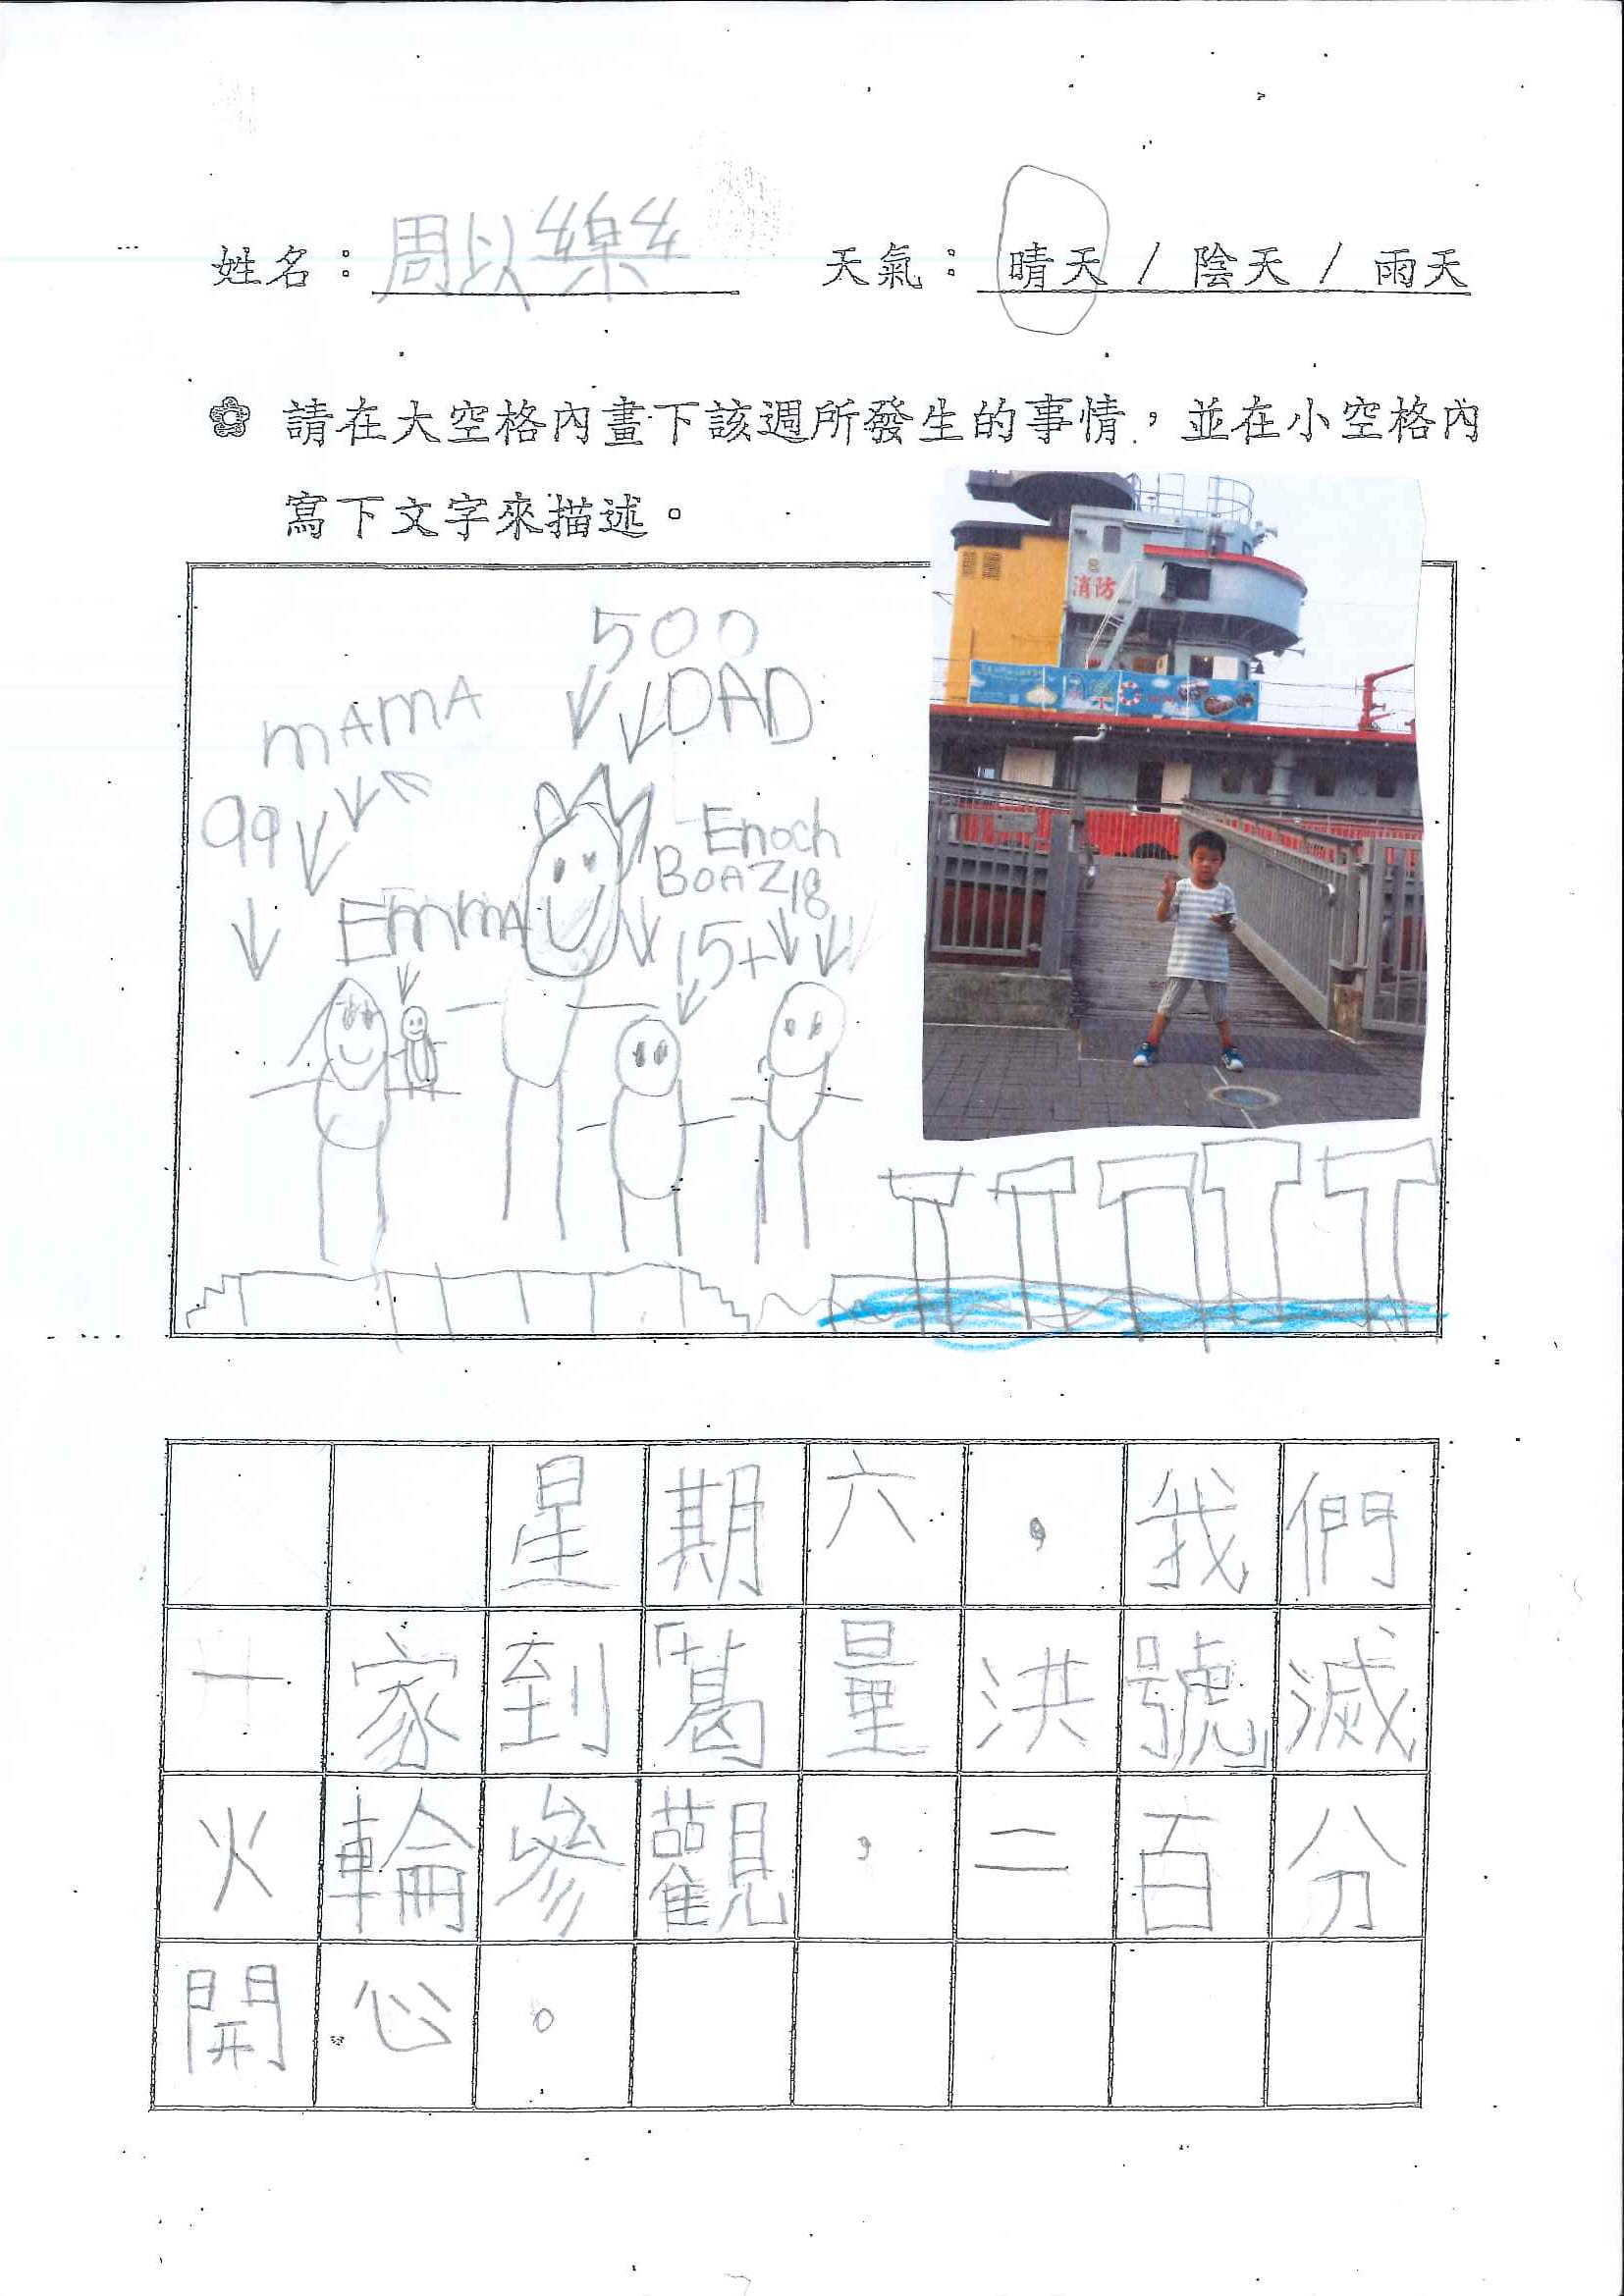 姓名：周以樂 天氣：晴天 / 陰天 / 雨天
請在大空格內畫下該週所發生的事情，並在小空格內
寫下文字來描述。
消防
500
DAD
MAMA
99
Enoch
BOAZ 18
Emma
15+
星期六，我們
一家到「葛量洪號」滅
火輪參觀，二百分
開心。